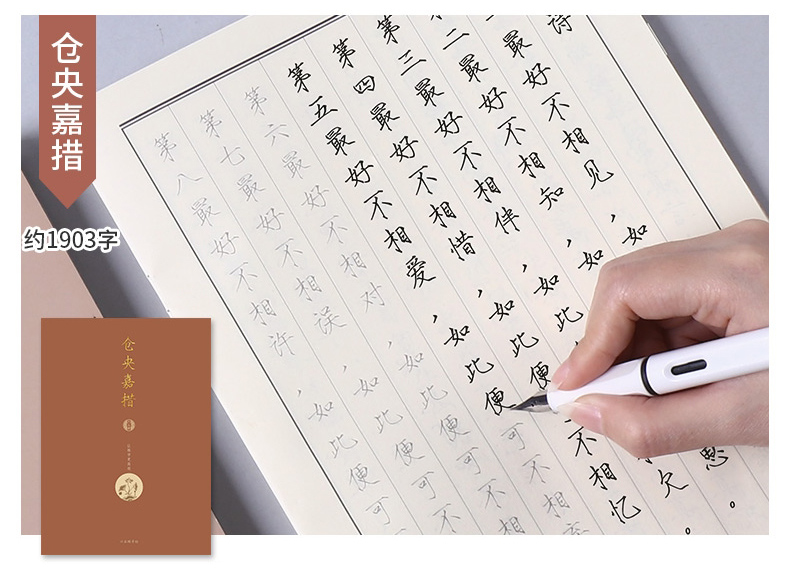 仓央嘉措
约1903字
诗
一最好不相见，如
二最好不相知，如 思。
第三最好不相伴，如此 欠。
第四最好不相惜，如此便 不相忆
第五最好不相爱，如此便可不相
第六最好不相对，如此便可不相
第七最好不相误，如此便可不
第八最好不相许，如此便可
仓央嘉措